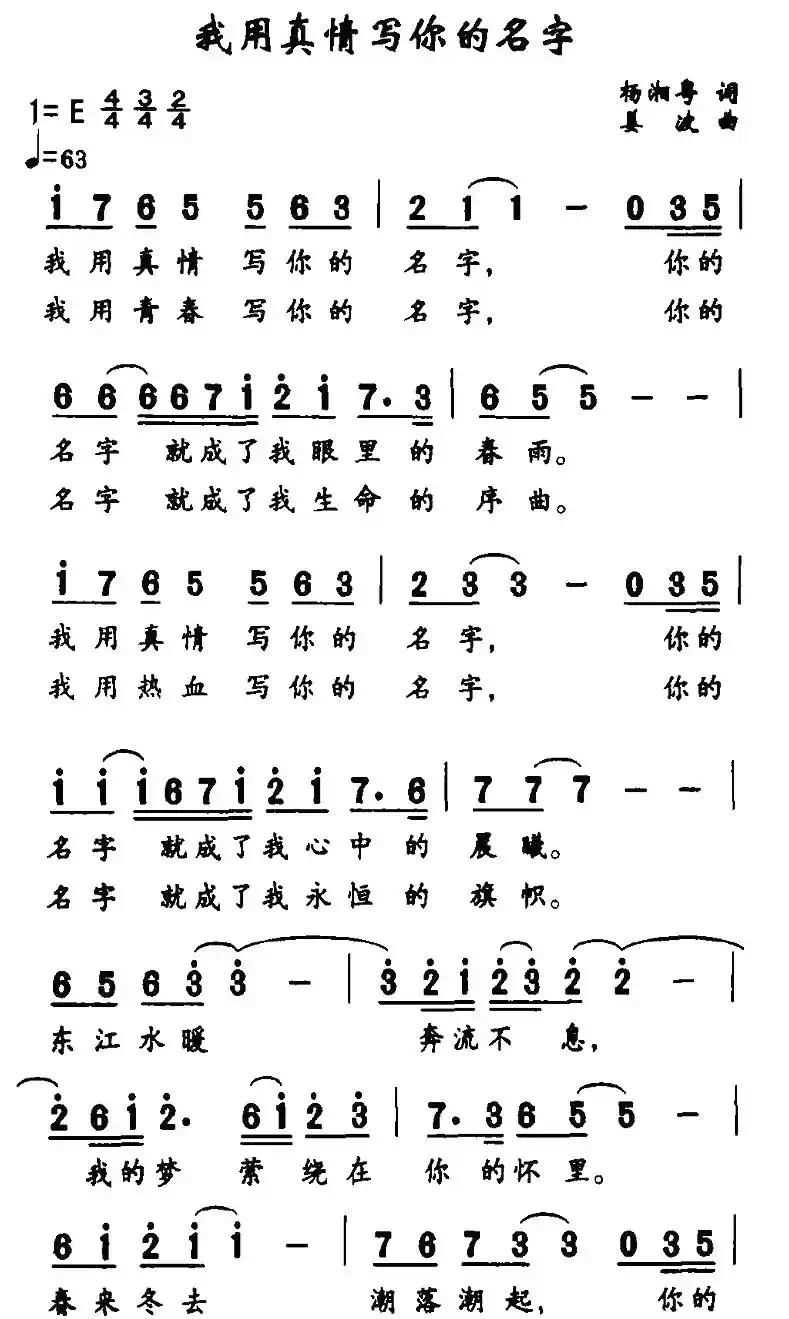 我用真情写你的名字
杨湘粤 词
1=E 4/4 3/4 2/4
姜 波 曲
♩=63
i 7 6 5 5 6 3 | 2 1 1 - 0 3 5 |
我用真情 写你的 名字, 你的
我用青春 写你的 名字, 你的
6 6 6 6 7 i 2 i 7. 3 | 6 5 5 - - |
名字 就成了我眼里的 春雨。
名字 就成了我生命的 序曲。
i 7 6 5 5 6 3 | 2 3 3 - 0 3 5 |
我用真情 写你的 名字, 你的
我用热血 写你的 名字, 你的
i i i 6 7 i 2 i 7. 6 | 7 7 7 - - |
名字 就成了我心中的 晨曦。
名字 就成了我永恒的 旗帜。
6 5 6 3 3 - | 3 2 i 2 3 2 2 - |
东江水暖 奔流不息,
2 6 i 2. 6 i 2 3 | 7. 3 6 5 5 - |
我的梦 萦绕在 你的怀里。
6 i 2 i i - | 7 6 7 3 3 0 3 5 |
春来冬去 潮落潮起, 你的